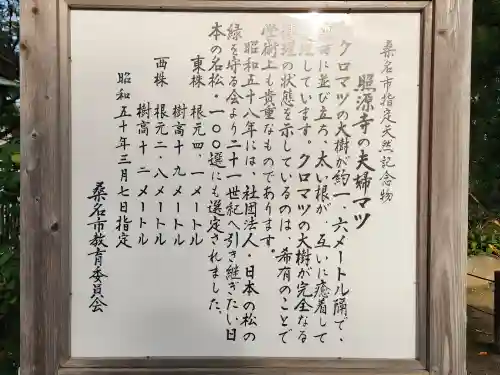 桑名市指定天然記念物
照源寺の夫婦マツ
クロマツの大樹が約一、六メートル隔て、
に並び立ち、太い根が、互いに癒着して
しています。クロマツの大樹が完全なる
の状態を示しているのは、希有のことで
学術上も貴重なものであります。
昭和五十八年には、社団法人・日本の松の
緑を守る会より二十一世紀へ引き継ぎたい日
本の名松・一〇〇選にも選定されました。
東株 根元四、一メートル
樹高十九メートル
西株 根元二、八メートル
樹高十二メートル
昭和五十年三月七日指定
桑名市教育委員会